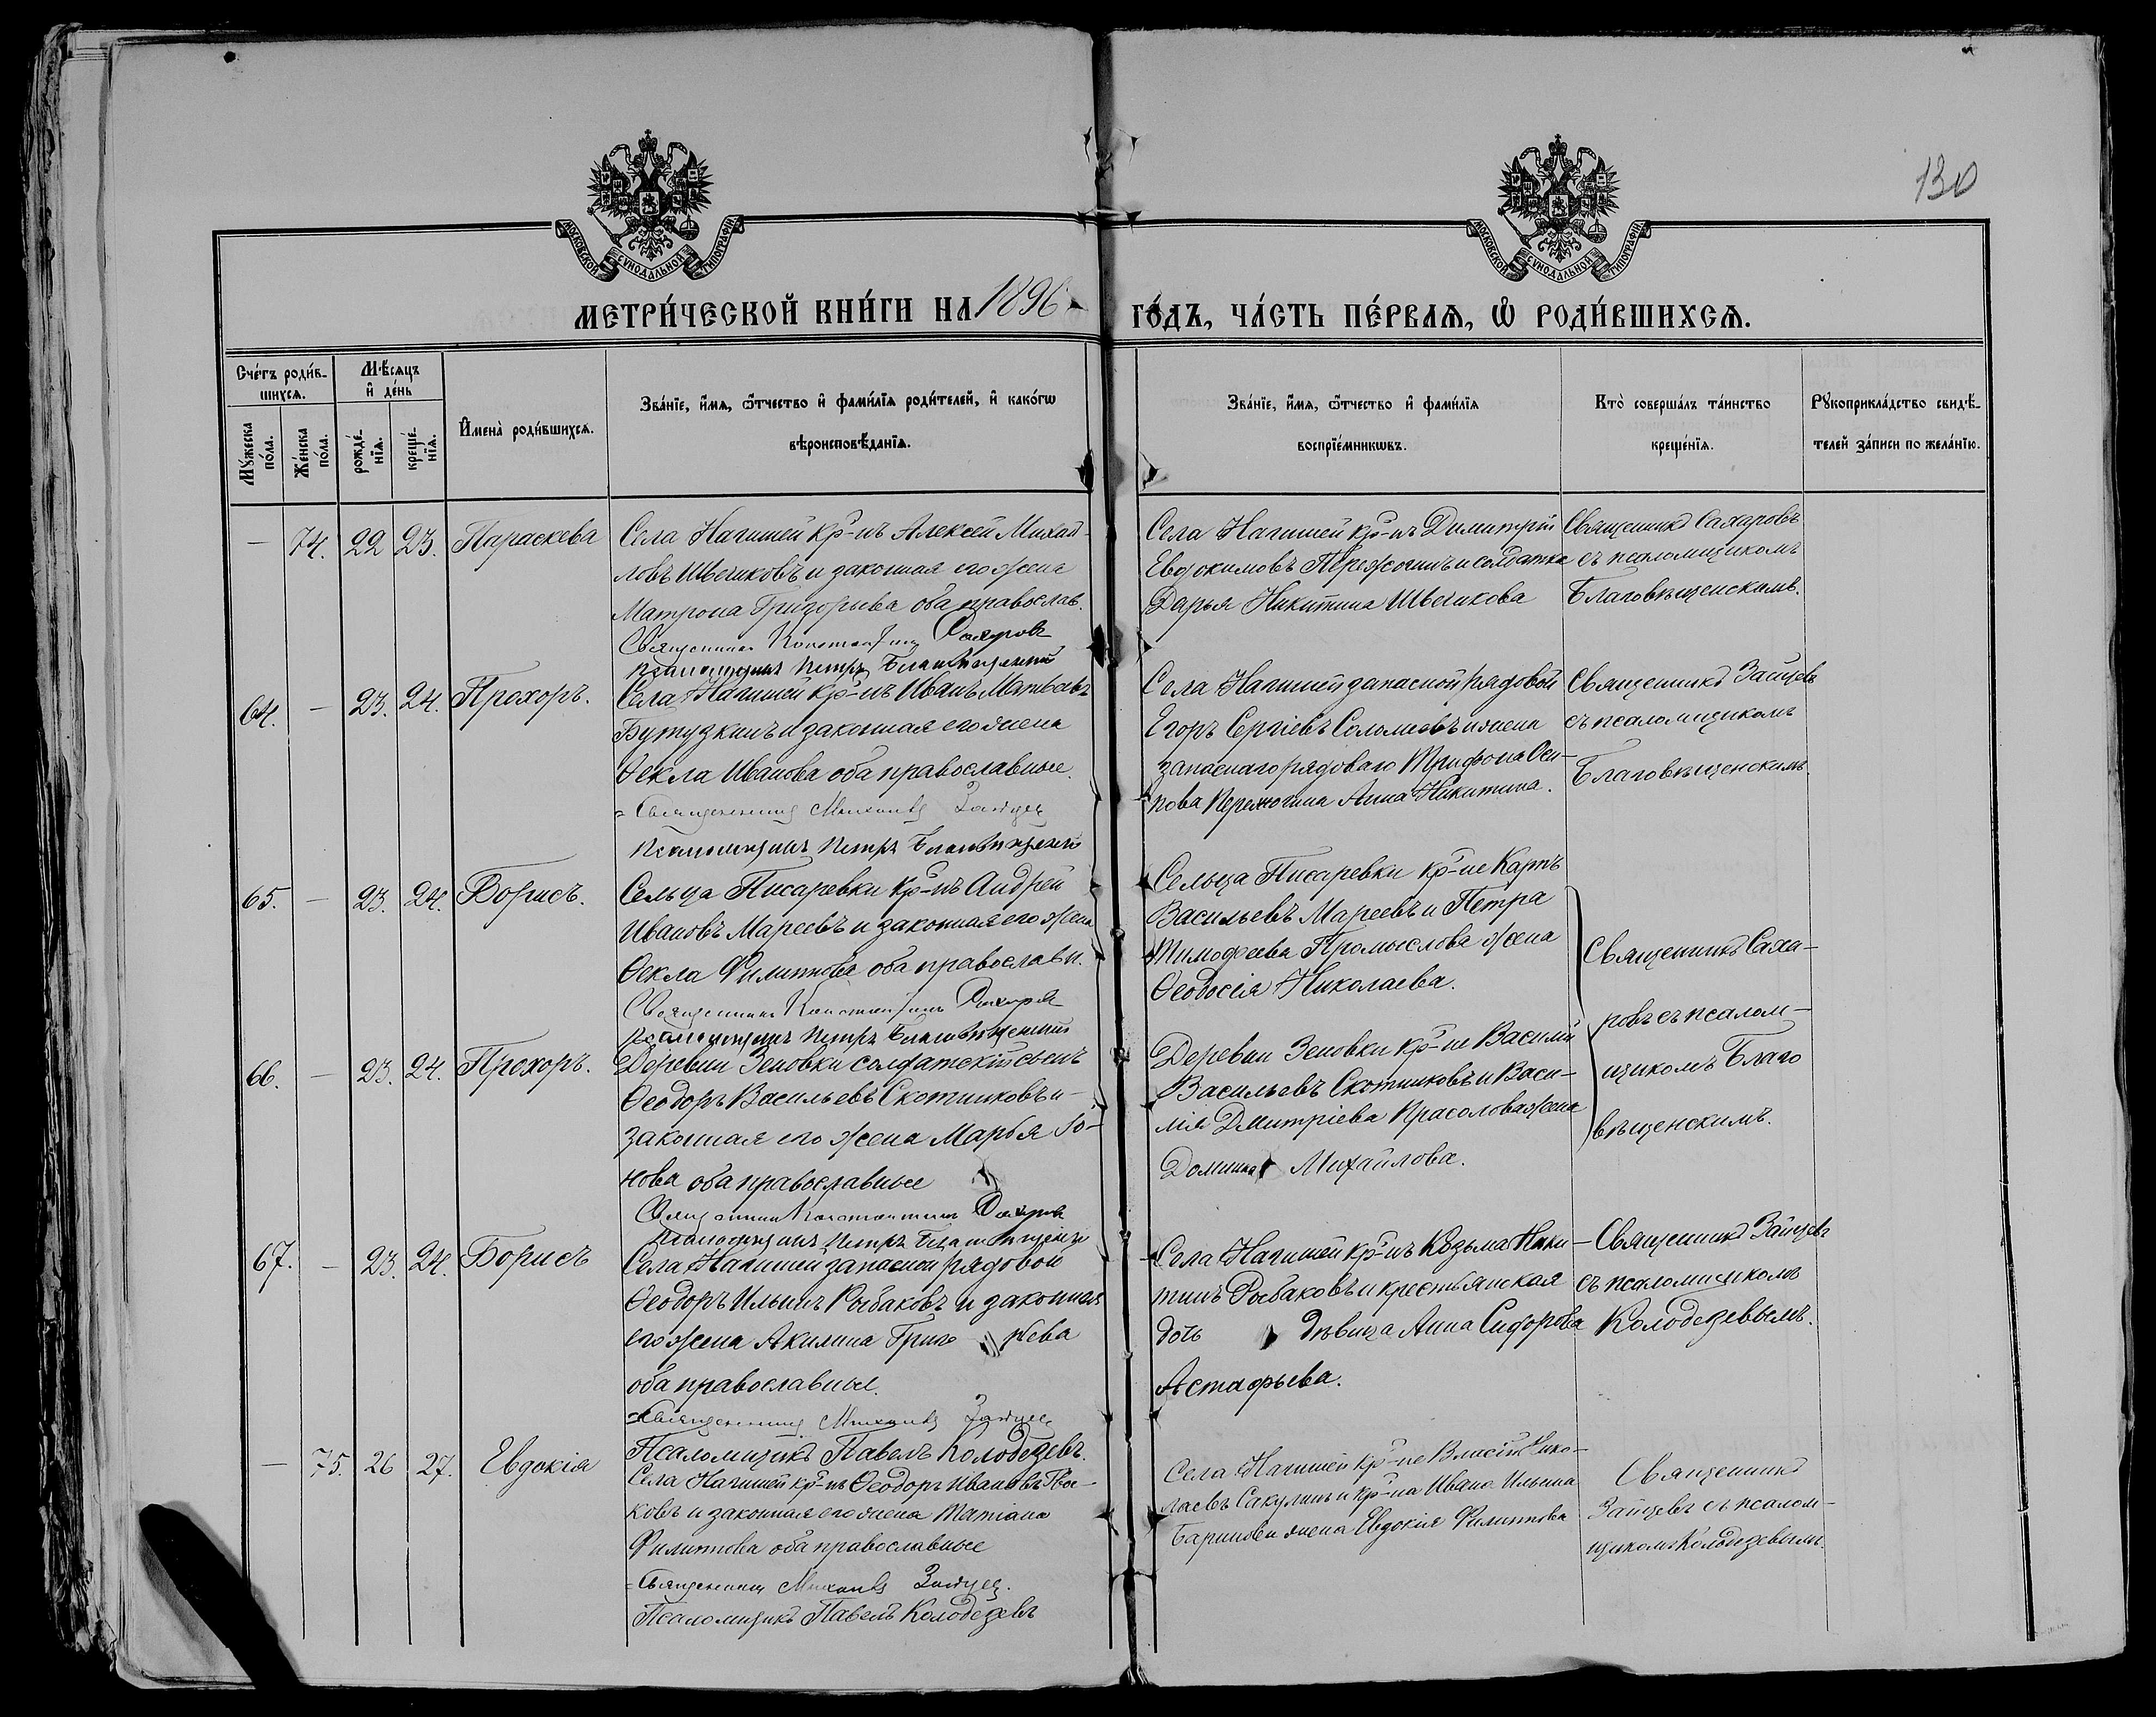 130
МОСКОВСКОЙ СѴНОДАЛЬНОЙ ТИПОГРАФІИ
МОСКОВСКОЙ СѴНОДАЛЬНОЙ ТИПОГРАФІИ
МЕТРИ́ЧЕСКОЙ КНИ́ГИ НА 1896 ГО́ДЪ, ЧА́СТЬ ПЕ́РВАѦ, Ѡ҆ РОДИ́ВШИХСѦ.
Сче́тъ роди́в-
шихсѧ.
Мꙋ́жеска по́ла.
Же́нска по́ла.
Мѣ́сѧцъ и҆ де́нь
рожде́-
нїѧ.
креще́-
нїѧ.
И҆мена̀ роди́вшихсѧ.
Зва́нїе, и҆́мѧ, ѻ҆́тчество и҆ фами́лїѧ роди́телей, и҆ како́гѡ
вѣроисповѣ́данїѧ.
Зва́нїе, и҆́мѧ, ѻ҆́тчество и҆ фами́лїѧ
воспрїе́мникѡвъ.
Кто̀ соверша́лъ та́инство
креще́нїѧ.
Рꙋкоприкла́дство свидѣ́-
телей за́писи по жела́нїю.
— 74. 22 23. Параскева
Села Нагишей кр-нъ Алексей Михай-
ловъ Швечиковъ и законная его жена
Матрона Григорьева оба православ.
Священникъ Константинъ Сахаровъ
Псаломщикъ Петръ Благовѣщенскій
Села Нагишей кр-нъ Димитрій
Евдокимовъ Пережогинъ и солдатка
Дарья Никитина Швечикова
Священникъ Сахаровъ
съ псаломщикомъ
Благовѣщенскимъ.
64. — 23. 24. Прохоръ.
Села Нагишей кр-нъ Иванъ Матвѣевъ
Бутузкинъ и законная его жена
Ѳекла Иванова оба православные.
Священникъ Михаилъ Зайцевъ
Псаломщикъ Петръ Благовѣщенскій
Села Нагишей запасной рядовой
Егоръ Сергіевъ Соломовъ и жена
запаснаго рядоваго Трифона Оси-
пова Пережогина Анна Никитина.
Священникъ Зайцевъ
съ псаломщикомъ
Благовѣщенскимъ.
65. — 23. 24. Борисъ.
Сельца Писаревки кр-нъ Андрей
Ивановъ Мареевъ и законная его жена
Ѳекла Филиппова оба православн.
Священникъ Константинъ Сахаровъ
Псаломщикъ Петръ Благовѣщенскій
Сельца Писаревки кр-не Карпъ
Васильевъ Мареевъ и Петра
Тимофеева Промыслова жена
Ѳеодосія Николаева.
Священникъ Саха-
ровъ съ псалом-
щикомъ Благо
вѣщенскимъ.
66. — 23. 24. Прохоръ.
Деревни Зеновки солдатскій сынъ
Ѳеодоръ Васильевъ Скотниковъ и
законная его жена Марья Іо-
нова оба православные
Священникъ Константинъ Сахаровъ
Псаломщикъ Петръ Благовѣщенскій
Деревни Зеновки кр-не Василій
Васильевъ Скотниковъ и Васи-
лія Дмитріева Красолова жена
Домника Михайлова.
67. — 23. 24. Борисъ
Села Нагишей запасной рядовой
Ѳеодоръ Ильинъ Рыбаковъ и законная
его жена Акилина Григорьева
оба православные.
Священникъ Михаилъ Зайцевъ
Псаломщикъ Павелъ Колодезевъ.
Села Нагишей кр-нъ Козьма Ники-
тинъ Рыбаковъ и крестьянская
дочь дѣвица Анна Сидорова
Астафьева.
Священникъ Зайцевъ
съ псаломщикомъ
Колодезевымъ.
— 75. 26 27. Евдокія
Села Нагишей кр-нъ Ѳеодоръ Ивановъ
ковъ и законная его жена Татіана
Филиппова оба православные
Священникъ Михаилъ Зайцевъ.
Псаломщикъ Павелъ Колодезевъ
Села Нагишей кр-не Власій Нико-
лаевъ Сакулинъ и кр-на Ивана Ильина
Баринова жена Евдокія Филиппова
Священникъ
Зайцевъ съ псалом-
щикомъ Колодезевымъ.